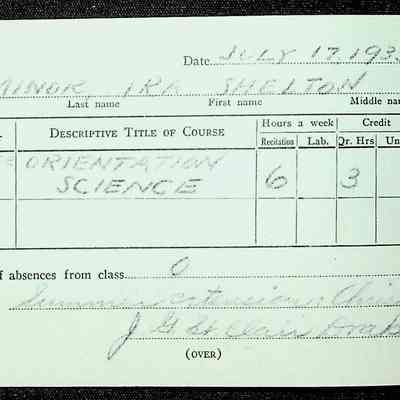 Date JULY 17, 193
MINOR, IRA SHELTON
Last name First name Middle nam
DESCRIPTIVE TITLE OF COURSE Hours a week Credit
Recitation Lab. Qr. Hrs Un
ORIENTATION
SCIENCE 6 3
f absences from class 0
Summer Extension
J. G. St. Clair Drake
(OVER)